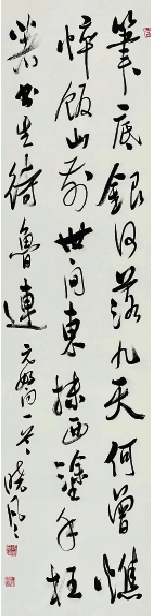 筆底銀河落九天何曾憔
悴飯山前世間東抹西塗手枉
著書生待魯連 元好問一首 曉風